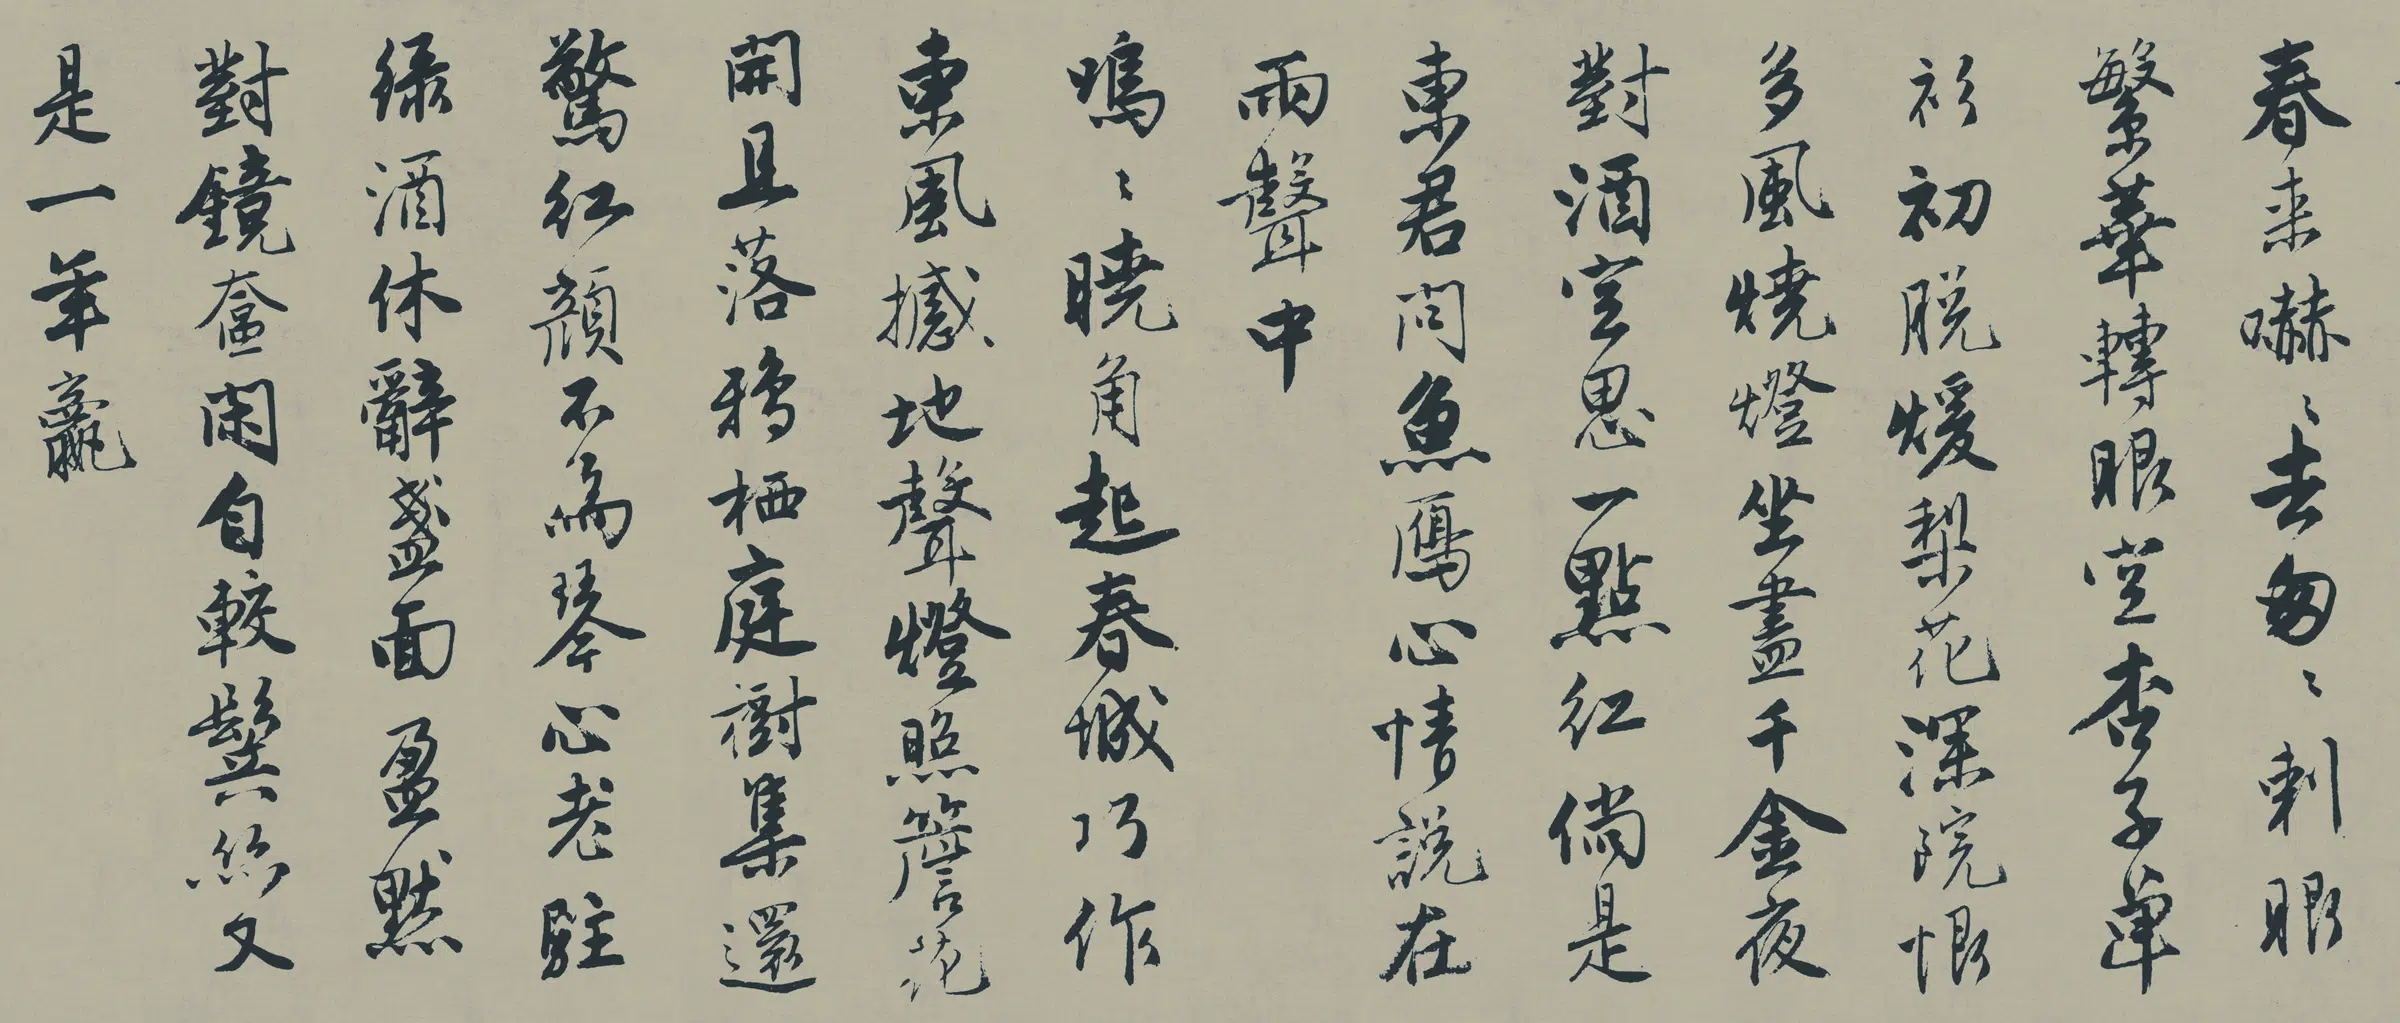 春来嚇〻去匆〻刺眼
繁華轉眼空杏子單
衫初脱煖梨花深院恨
多風燒燈坐盡千金夜
對酒空思一點紅倘是
東君問魚鴈心情説在
雨聲中
鳴〻曉角起春城巧作
東風撼地聲燈照簷花
開且落鴉栖庭樹集還
驚紅顔不為琴心老駐
緑酒休辭盞面盈默
對鏡奩閑自較鬢絲又
是一年贏